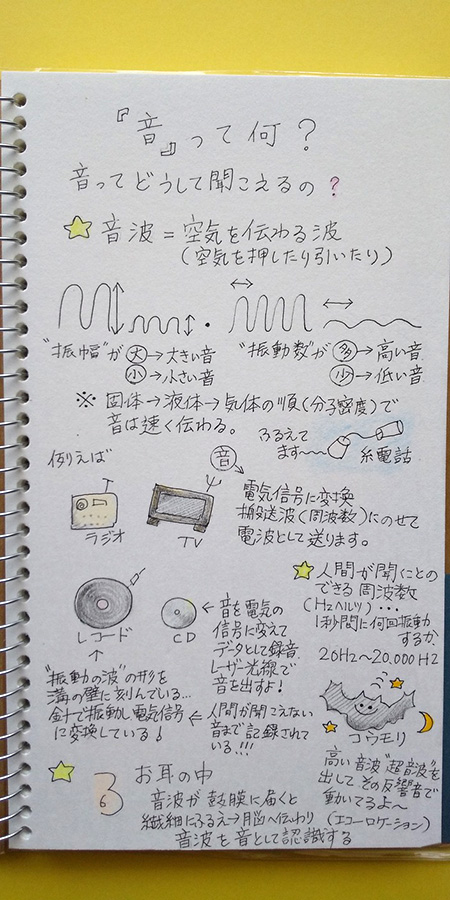 『音』って何？
音ってどうして聞こえるの？
音波＝空気を伝わる波
（空気を押したり引いたり）
"振幅"が大→大きい音
小→小さい音
"振動数"が多→高い音
少→低い音
※固体→液体→気体の順（分子密度）で
音は速く伝わる。
ふるえて
ます〜
糸電話
例えば
ラジオ
TV
音
電気信号に変換
搬送波（周波数）にのせて
電波として送ります。
レコード
CD
←音を電気の
信号に変えて
データとして録音
レーザー光線で
音を出すよ！
人間が聞くことの
できる周波数
（Hzヘルツ）…
1秒間に何回振動
するか
20Hz〜20.000Hz
↑
"振動の波"の形を
溝の壁に刻んでいる…
針で振動し電気信号
に変換している！
←人間が聞こえない
音まで記録されて
いる!!!
コウモリ
高い音波"超音波"を
出してその反響音で
動いてるよ〜
（エコーロケーション）
お耳の中
音波が鼓膜に届くと
繊細にふるえ→脳へ伝わり
音波を音として認識する